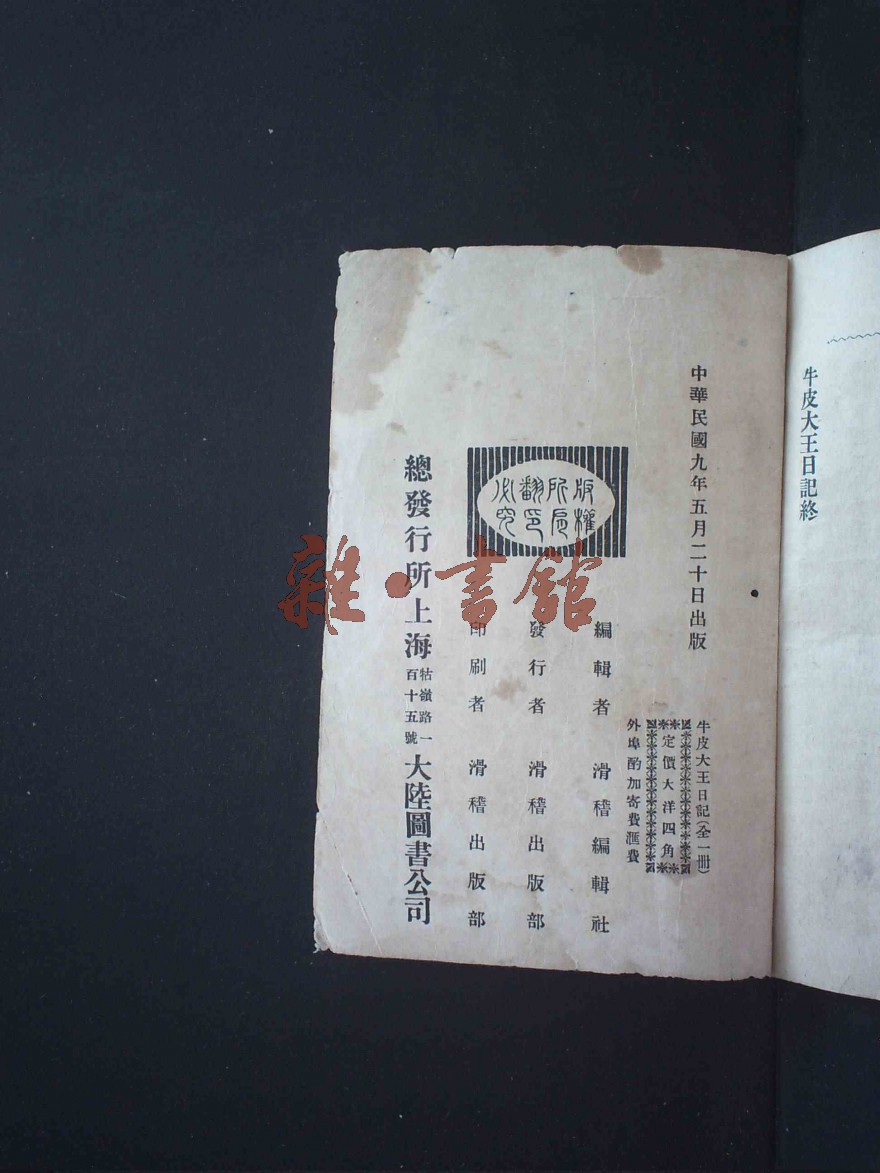 牛皮大王日記終
中華民國九年五月二十日出版
牛皮大王日記(全一冊)
定價大洋四角
外埠酌加寄費滙費
編輯者 滑稽編輯社
發行者 滑稽出版部
印刷者 滑稽出版部
版權
所有
翻印
必究
總發行所上海牯嶺路一百十五號大陸圖書公司
雜·書館